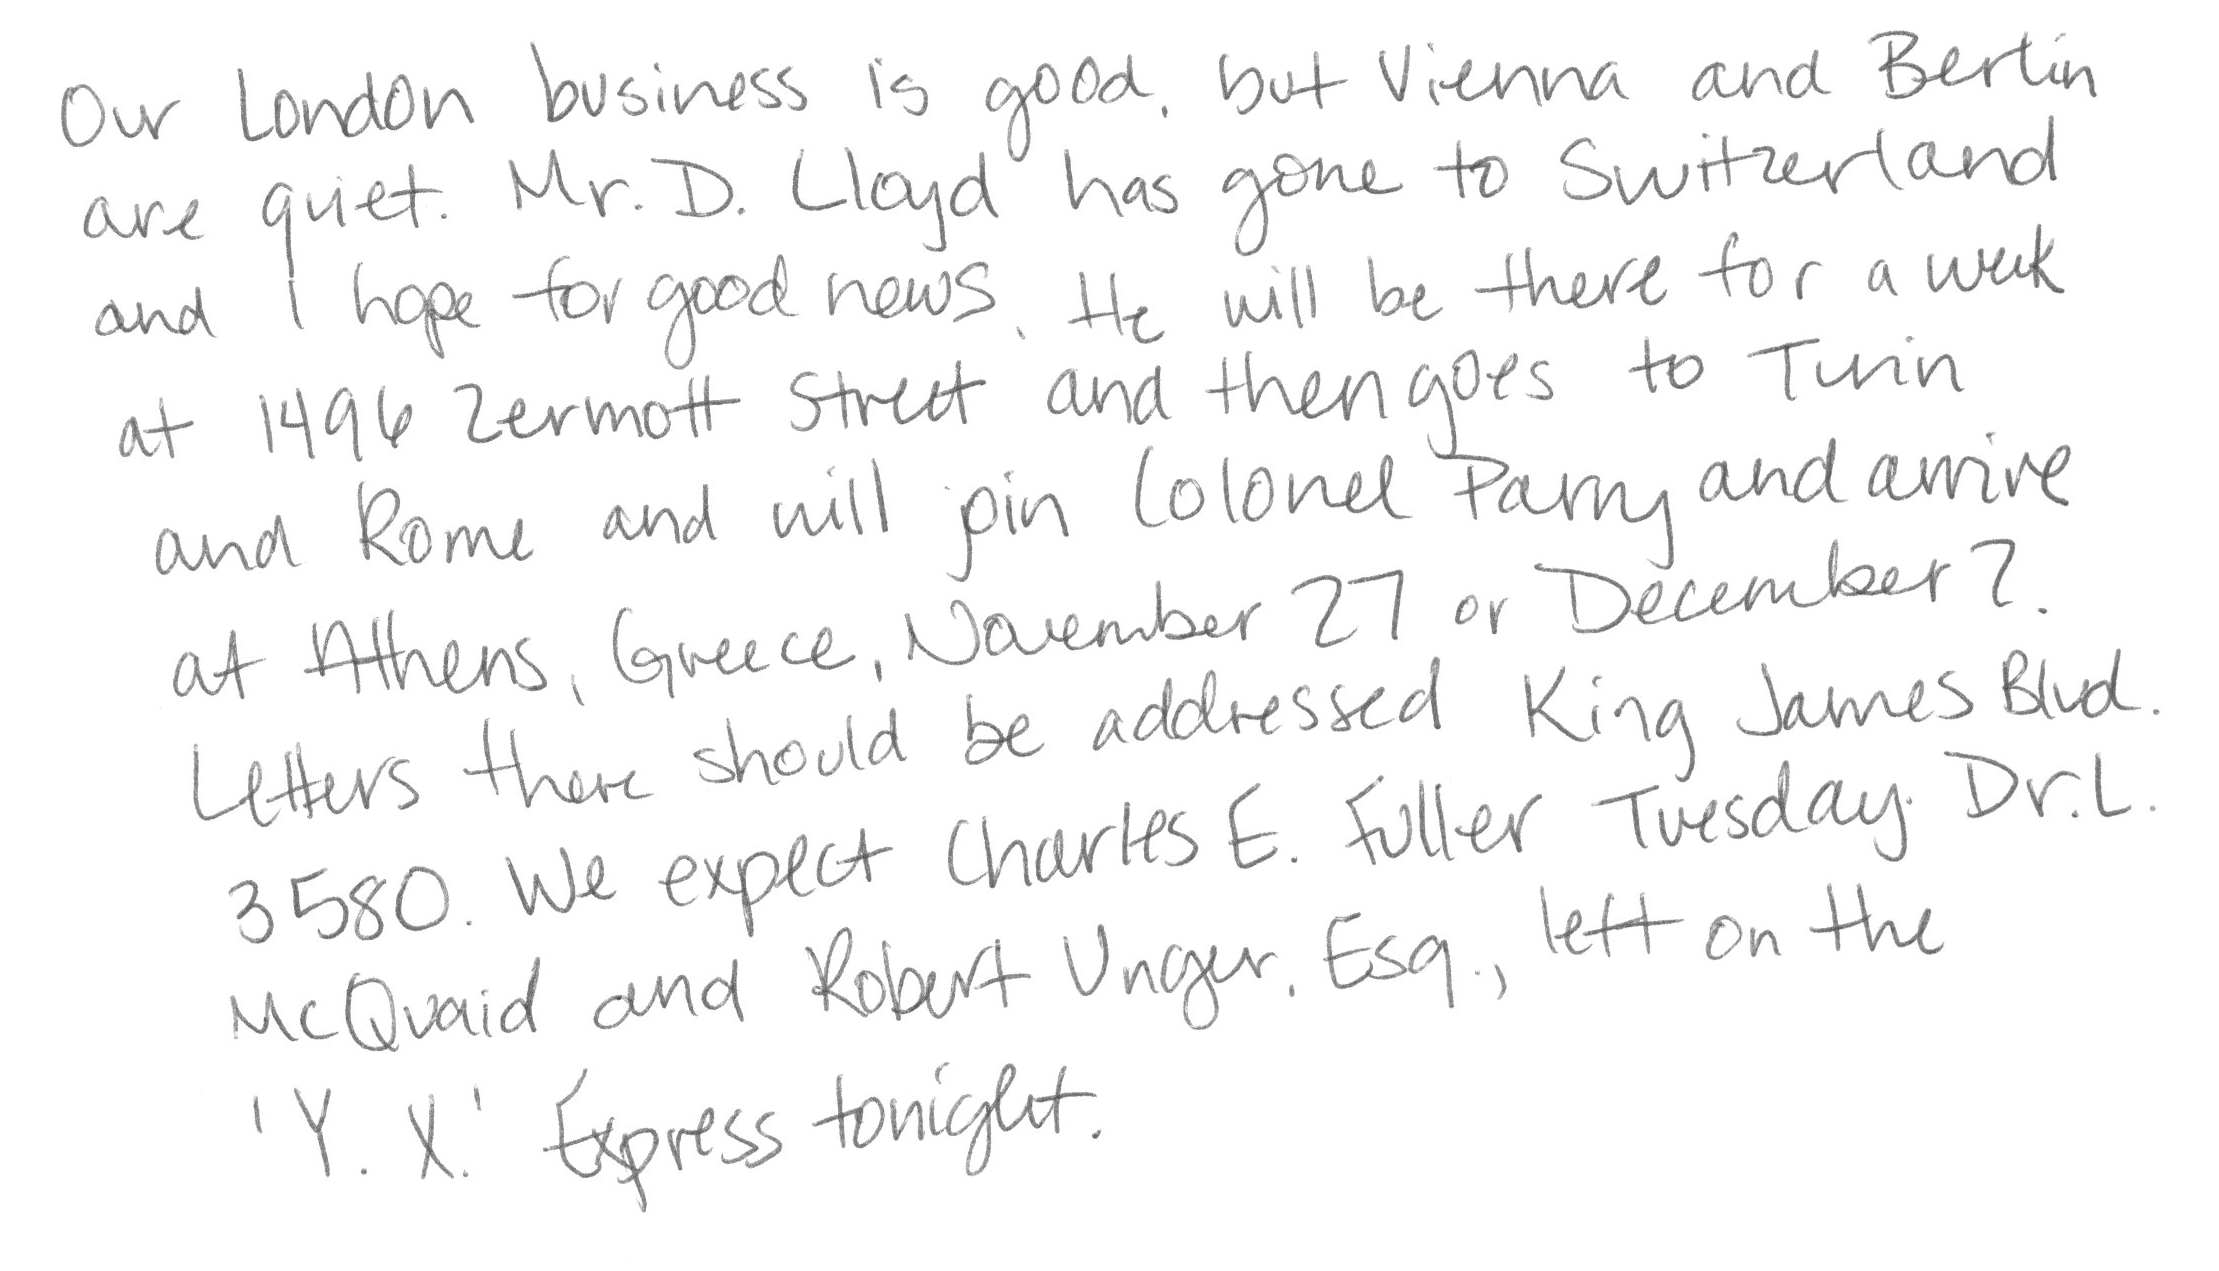 Our London business is good, but Vienna and Berlin
are quiet. Mr. D. Lloyd has gone to Switzerland
and I hope for good news. He will be there for a week
at 1496 Zermott Street and then goes to Turin
and Rome and will join Colonel Parry and arrive
at Athens, Greece, November 27 or December 2.
Letters there should be addressed King James Blvd.
3580. We expect Charles E. Fuller Tuesday. Dr. L.
McQuaid and Robert Unger, Esq., left on the
'Y. X.' Express tonight.